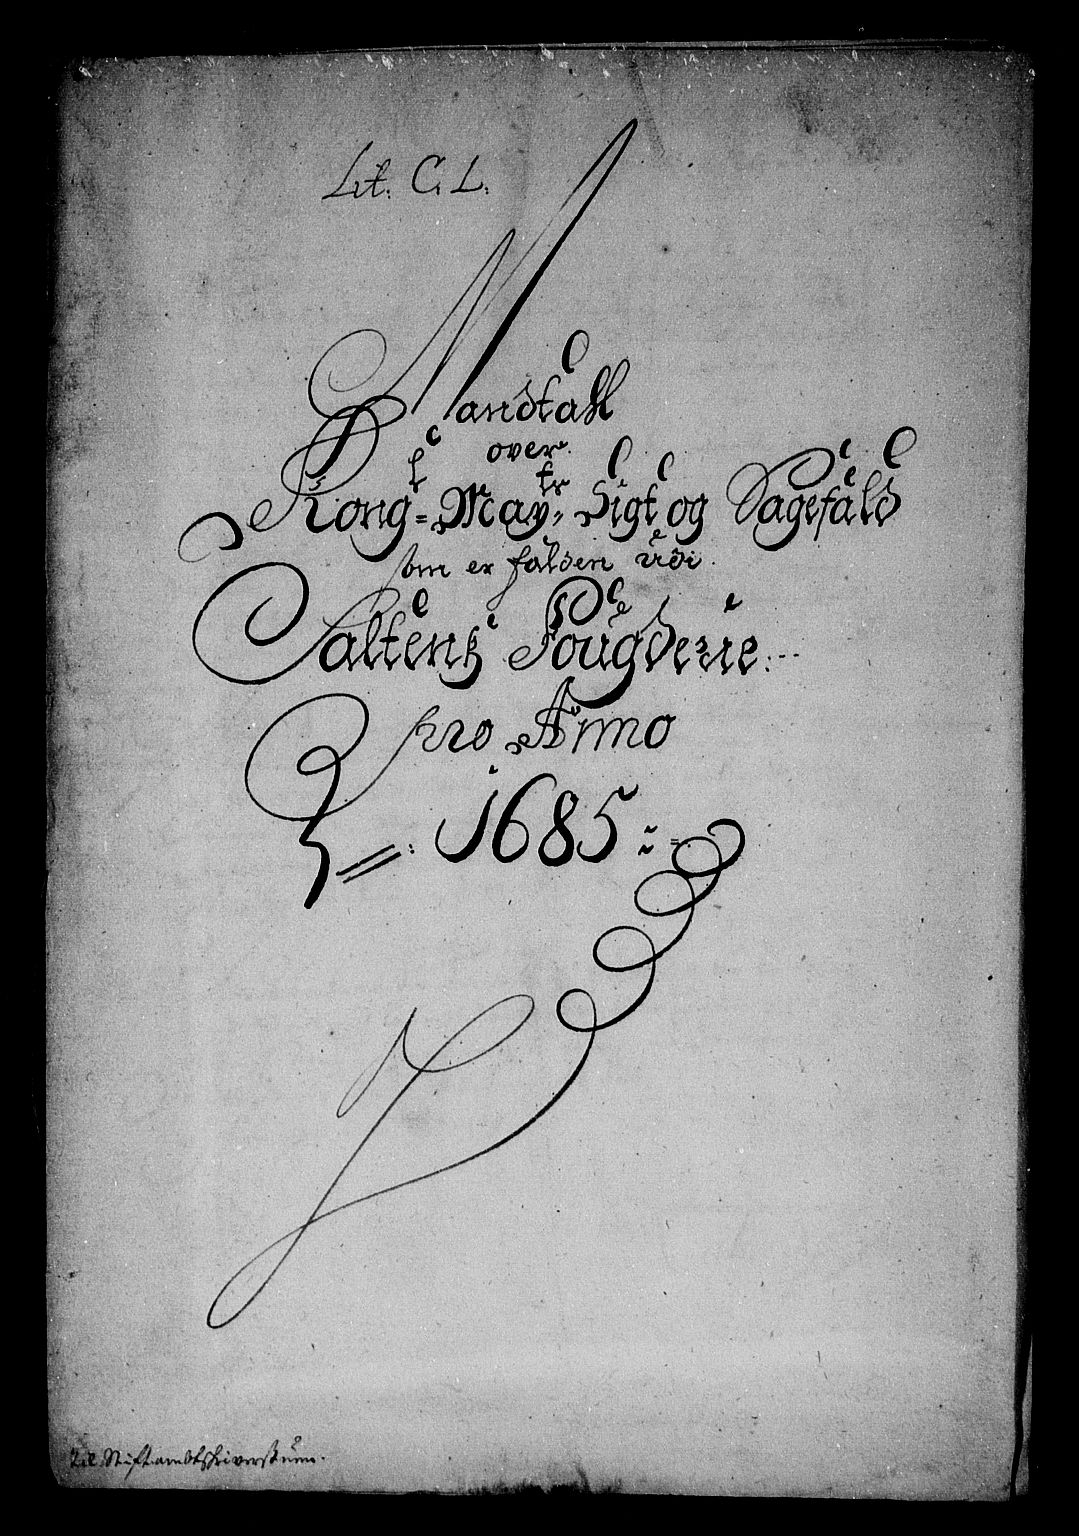 Lit: C. L.
Mandtall
over
Kongl: May:tz Sigt og Sagefald
som er falden udi
Saltens Fougderie:
pro Anno
1685: